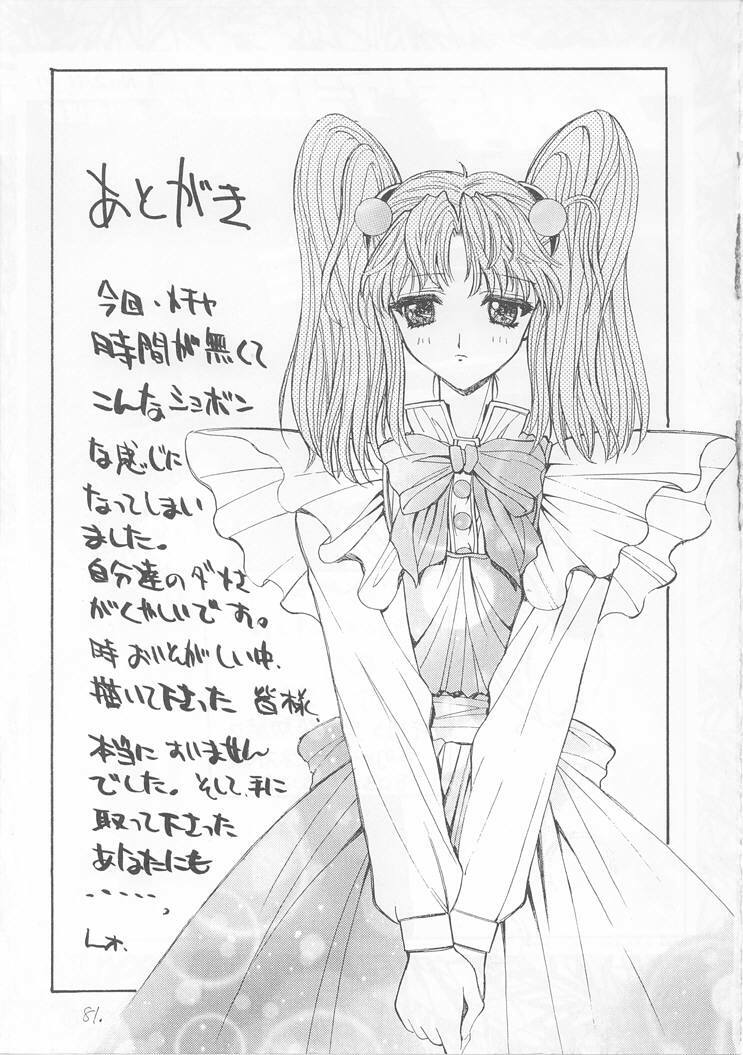 あとがき
今回・メチャ
時間が無くて
こんなショボン
な感じに
なってしまい
ました。
自分達のダメさ
がくやしいです。
時おいそがしい中、
描いて下さった 皆様、
本当にすいません
でした。そして、手に
取って下さった
あなたにも
・・・・・。
81.